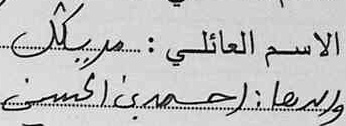 الاسم العائلي : مريكل
والدها : احمد بن الحسن